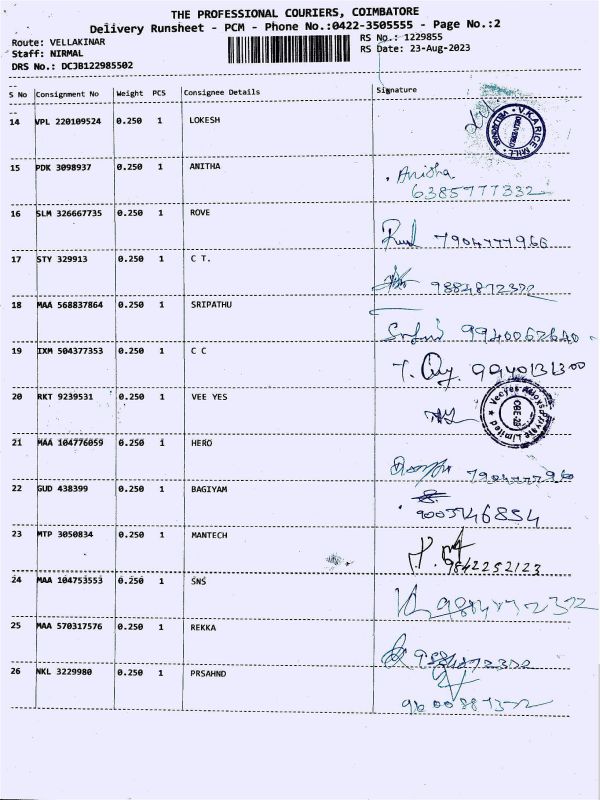 THE PROFESSIONAL COURIERS, COIMBATORE
Delivery Runsheet - PCM - Phone No.:0422-3505555 - Page No.:2
Route: VELLAKINAR RS No.: 1229855
Staff: NIRMAL RS Date: 23-Aug-2023
DRS No.: DCJB122985502
S No Consignment No Weight PCS Consignee Details Signature
14 VPL 220109524 0.250 1 LOKESH
V.K.A RICE MILL DELIVERED
15 PDK 3098937 0.250 1 ANITHA Anitha
6385777332
16 SLM 326667735 0.250 1 ROVE
7904777966
17 STY 329913 0.250 1 C T.
9884872372
18 MAA 568837864 0.250 1 SRIPATHU
9940062640
19 IXM 504377353 0.250 1 C C
9940131300
20 RKT 9239531 0.250 1 VEE YES
Veeyes Alloys Private Limited
21 MAA 104776059 0.250 1 HERO
7904777960
22 GUD 438399 0.250 1 BAGIYAM
9003746854
23 MTP 3050834 0.250 1 MANTECH
9842252123
24 MAA 104753553 0.250 1 SNS
25 MAA 570317576 0.250 1 REKKA
9884872372
26 NKL 3229980 0.250 1 PRSAHND